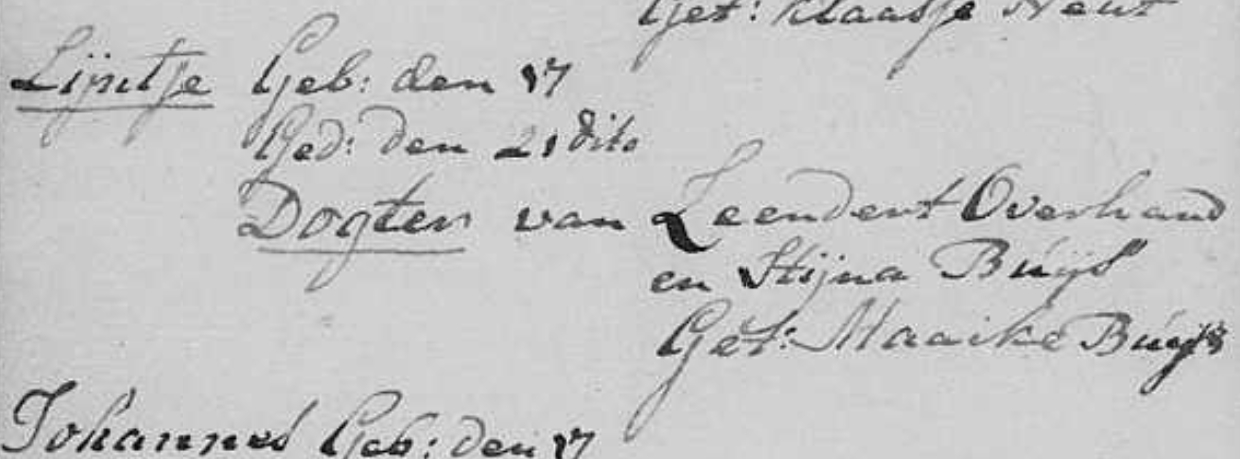 Get: Klaasje Neut
Lijntje Geb: den 17
Ged: den 21 dito
Dogter van Leendert Overhand
en Stijna Buijs
Get: Maaike Buijs
Johannes Geb: den 17